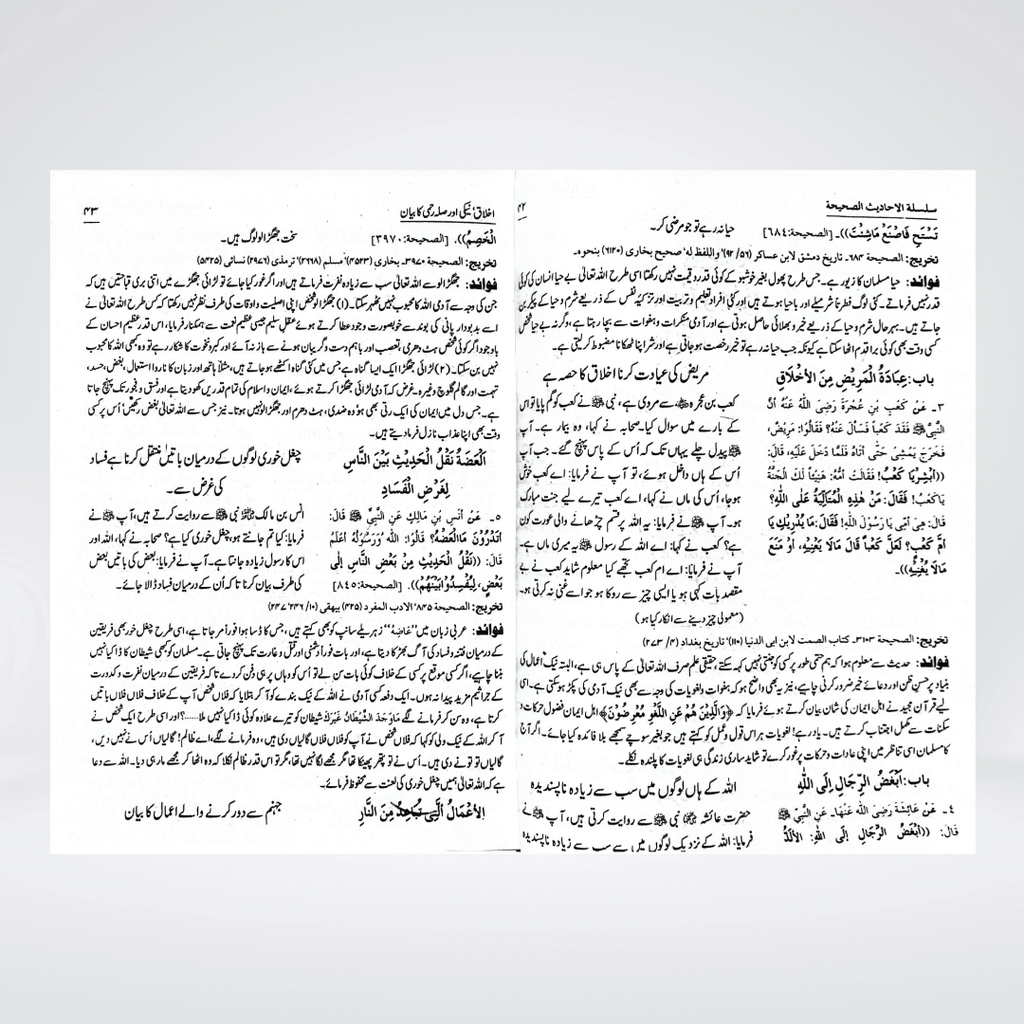 سلسلة الاحاديث الصحيحة ۴۲
تَسْتَحِ فَاصْنَعْ مَاشِئْتَ))۔ [الصحيحة:٦٨٤]
حیا نہ رہے تو جو مرضی کر۔
تخريج: الصحيحة ۶۸۴۔ تاریخ دمشق لابن عساکر (۵۶/ ۹۲) واللفظ له‘ صحیح بخاری (۶۱۲۰) بنحوه۔
فوائد: حیا مسلمان کا زیور ہے۔ جس طرح پھول بغیر خوشبو کے کوئی قدر و قیمت نہیں رکھتا اسی طرح اللہ تعالیٰ بے حیا انسان کی کوئی
قدر نہیں فرماتے۔ کئی لوگ فطرتاً شرمیلے اور باحیا ہوتے ہیں اور کئی افراد تعلیم و تربیت اور تزکیۂ نفس کے ذریعے شرم و حیا کے پیکر بن
جاتے ہیں۔ بہرحال شرم و حیا کے ذریعے خیر و بھلائی حاصل ہوتی ہے اور آدمی منکرات و ہفوات سے بچا رہتا ہے، وگرنہ بے حیا شخص
کسی وقت بھی کوئی برا قدم اٹھا سکتا ہے کیونکہ جب حیا نہ رہے تو خیر رخصت ہو جاتی ہے اور شر اپنا ٹھکانا مضبوط کر لیتی ہے۔
باب: عِيَادَةُ الْمَرِيْضِ مِنَ الْأَخْلَاقِ
مریض کی عیادت کرنا اخلاق کا حصہ ہے
٣۔ عَنْ كَعْبِ بْنِ عُجْرَةَ رَضِيَ اللّٰهُ عَنْهُ أَنَّ
النَّبِيَّ ﷺ فَقَدَ كَعْباً فَسَأَلَ عَنْهُ؟ فَقَالُوْا: مَرِيْضٌ،
فَخَرَجَ يَمْشِيْ حَتّٰى أَتَاهُ فَلَمَّا دَخَلَ عَلَيْهِ، قَالَ:
((أَبْشِرْيَا كَعْبُ! فَقَالَتْ أُمُّهُ: هَنِيْئاً لَكَ الْجَنَّةُ
يَا كَعْبُ! فَقَالَ: مَنْ هٰذِهِ الْمُتَأَلِّيَةُ عَلَى اللّٰهِ؟
قَالَ: هِيَ أُمِّيْ يَا رَسُوْلَ اللّٰهِ! فَقَالَ: مَا يُدْرِيْكِ يَا
أُمَّ كَعْبٍ؟ لَعَلَّ كَعْباً قَالَ مَالَا يَعْنِيْهِ، أَوْ مَنَعَ
مَالَا يُغْنِيْهِ))۔
کعب بن عجرہ سے مروی ہے، نبی ﷺ نے کعب کو گم پایا تو اس
کے بارے میں سوال کیا۔ صحابہ نے کہا، وہ بیمار ہے۔ آپ
ﷺ پیدل چلے یہاں تک کہ اُس کے پاس پہنچ گئے۔ جب آپ
اُس کے ہاں داخل ہوئے، تو آپ نے فرمایا: اے کعب خوش
ہوجا، اُس کی ماں نے کہا، اے کعب تیرے لیے جنت مبارک
ہو۔ آپ ﷺ نے فرمایا: یہ اللہ پر قسم چڑھانے والی عورت کون
ہے؟ کعب نے کہا: اے اللہ کے رسول ﷺ یہ میری ماں ہے۔
آپ نے فرمایا: اے ام کعب تجھے کیا معلوم شاید کعب نے بے
مقصد بات کہی ہو یا ایسی چیز سے روکا ہو جو اسے غنی نہ کرتی ہو۔
(معمولی چیز دینے سے انکار کیا ہو)
تخريج: الصحيحة ۳۱۰۳۔ کتاب الصمت لابن ابی الدنیا (۱۱۰)‘ تاریخ بغداد (۴/ ۲۷۳)
فوائد: حدیث سے معلوم ہوا کہ ہم حتمی طور پر کسی کو جنتی نہیں کہہ سکتے حقیقی علم صرف اللہ تعالیٰ کے پاس ہی ہے، البتہ نیک اعمال کی
بنیاد پر حسن ظن اور دعائے خیر ضرور کرنی چاہیے، نیز یہ بھی واضح ہو کہ ہفوات و لغویات کی وجہ سے بھی نیک آدمی کی پکڑ ہو سکتی ہے۔ اسی
لیے قرآن مجید نے اہل ایمان کی شان بیان کرتے ہوئے فرمایا کہ ﴿وَالَّذِيْنَ هُمْ عَنِ اللَّغْوِ مُعْرِضُوْنَ﴾ اہل ایمان فضول حرکات و
سکنات سے مکمل اجتناب کرتے ہیں۔ یاد رہے! لغویات ہر اس قول و عمل کو کہتے ہیں جو بغیر سوچے سمجھے بلا فائدہ کیا جائے۔ اگر آج
کا مسلمان اسی تناظر میں اپنی عادات و حرکات پر غور کرے تو شاید ساری زندگی ہی لغویات کا پلندہ نکلے۔
باب: أَبْغَضُ الرِّجَالِ إِلَى اللّٰهِ
اللہ کے ہاں لوگوں میں سب سے زیادہ ناپسندیدہ
٤۔ عَنْ عَائِشَةَ رَضِيَ اللّٰهُ عَنْهَا۔ عَنِ النَّبِيِّ ﷺ
قَالَ: ((أَبْغَضُ الرِّجَالِ إِلَى اللّٰهِ: الْأَلَدُّ
حضرت عائشہ نبی ﷺ سے روایت کرتی ہیں، آپ نے
فرمایا: اللہ کے نزدیک لوگوں میں سے سب سے زیادہ ناپسندیدہ
اخلاق‘ نیکی اور صلہ رحمی کا بیان ۴۳
الْخَصِمُ))۔ [الصحيحة:٣٩٧٠]
سخت جھگڑالو لوگ ہیں۔
تخريج: الصحيحة ۳۹۷۰۔ بخاری (۴۵۲۳)‘ مسلم (۲۶۶۸)‘ ترمذی (۲۹۷۶)‘ نسائی (۵۴۲۵)
فوائد: جھگڑالو سے اللہ تعالیٰ سب سے زیادہ نفرت فرماتے ہیں اور اگر غور کیا جائے تو لڑائی جھگڑے میں اتنی بری قباحتیں ہیں کہ
جن کی وجہ سے آدمی اللہ کا محبوب نہیں ٹھہر سکتا۔ (۱) جھگڑالو شخص اپنی اصلیت و اوقات کی طرف نظر نہیں رکھتا کہ کس طرح اللہ تعالیٰ نے
اسے بدبودار پانی کی بوند سے خوبصورت وجود عطا کرتے ہوئے عقل سلیم جیسی عظیم نعمت سے ہمکنار فرمایا، اس قدر عظیم احسان کے
باوجود اگر کوئی شخص ہٹ دھرمی، تعصب اور باہم دست و گریباں ہونے سے باز نہ آئے اور کبر و نخوت کا شکار رہے تو وہ کبھی اللہ کا محبوب
نہیں بن سکتا۔ (۲) لڑائی جھگڑا ایک ایسا گناہ ہے جس میں کئی گناہ اکٹھے ہو جاتے ہیں، مثلاً ہاتھ اور زبان کا ناروا استعمال، بغض، حسد،
تہمت اور گالم گلوچ وغیرہ۔ غرض کہ آدمی لڑائی جھگڑا کرتے ہوئے، ایمان و اسلام کی تمام قدریں کھو دیتا ہے اور فسق و فجور تک پہنچ جاتا
ہے۔ جس دل میں ایمان کی ایک رتی بھی ہو وہ ضدی، ہٹ دھرم اور جھگڑالو نہیں ہوتا۔ نیز جس سے اللہ تعالیٰ بغض رکھیں‘ اُس پر کسی
وقت بھی اپنا عذاب نازل فرما دیتے ہیں۔
اَلْعَضَةُ نَقْلُ الْحَدِيْثِ بَيْنَ النَّاسِ
لِغَرْضِ الْفَسَادِ
چغل خوری لوگوں کے درمیان باتیں منتقل کرنا ہے فساد
کی غرض سے۔
٥۔ عَنْ أَنَسِ بْنِ مَالِكٍ عَنِ النَّبِيِّ ﷺ قَالَ:
أَتَدْرُوْنَ مَاالْعَضْهُ؟ قَالُوْا: اللّٰهُ وَرَسُوْلُهُ أَعْلَمُ
قَالَ: ((نَقْلُ الْحَدِيْثِ مِنْ بَعْضِ النَّاسِ إِلٰى
بَعْضٍ، لِيُفْسِدُوْابَيْنَهُمْ))۔ [الصحيحة:٨٤٥]
انس بن مالک نبی ﷺ سے روایت کرتے ہیں، آپ ﷺ نے
فرمایا: کیا تم جانتے ہو، چغل خوری کیا ہے؟ صحابہ نے کہا، اللہ اور
اس کا رسول زیادہ جانتا ہے۔ آپ نے فرمایا: بعض کی باتیں بعض
کی طرف بیان کرنا تاکہ اُن کے درمیان فساد ڈالا جائے۔
تخريج: الصحيحة ۸۴۵‘ الادب المفرد (۴۲۵)‘ بیہقی (۱۰/ ۲۴۶‘ ۲۴۷)
فوائد: عربی زبان میں ”عَاضِهٌ“ زہریلے سانپ کو بھی کہتے ہیں، جس کا ڈسا ہوا فوراً مر جاتا ہے، اسی طرح چغل خور بھی فریقین
کے درمیان فتنہ و فساد کی آگ بھڑکا دیتا ہے، اور بات فوراً دشمنی اور قتل و غارت تک پہنچ جاتی ہے۔ مسلمان کو کبھی شیطان کا ڈاکیا نہیں
بننا چاہیے، اگر کسی موقع پر کسی کے خلاف کوئی بات سن لے تو اُس کو وہاں پر ہی دفن کر دے تاکہ فریقین کے درمیان نفرت و کدورت
کے جراثیم مزید پیدا نہ ہوں۔ ایک دفعہ کسی آدمی نے اللہ کے نیک بندے کو آ کر بتلایا کہ فلاں شخص آپ کے خلاف فلاں فلاں باتیں
کرتا ہے، وہ سن کر فرمانے لگے مَا وَجَدَ الشَّيْطَانُ غَيْرَكَ شیطان کو تیرے علاوہ کوئی ڈاکیا نہیں ملا......؟ اور اسی طرح ایک شخص نے
آ کر اللہ کے نیک ولی کو کہا کہ فلاں شخص نے آپ کو فلاں فلاں گالیاں دی ہیں، وہ فرمانے لگے، اے ظالم! گالیاں اُس نے نہیں دیں،
گالیاں تو تو نے دی ہیں۔ اُس نے تو پتھر پھینکا تھا مگر مجھے لگا نہیں تھا، مگر تو اس قدر ظالم نکلا کہ وہ اٹھا کر مجھے مار ہی دیا۔ اللہ سے دعا
ہے کہ اللہ تعالیٰ ہمیں چغل خوری کی لعنت سے محفوظ فرمائے۔
اَلْأَعْمَالُ الَّتِيْ تُبَاعِدُ مِنَ النَّارِ
جہنم سے دور کرنے والے اعمال کا بیان